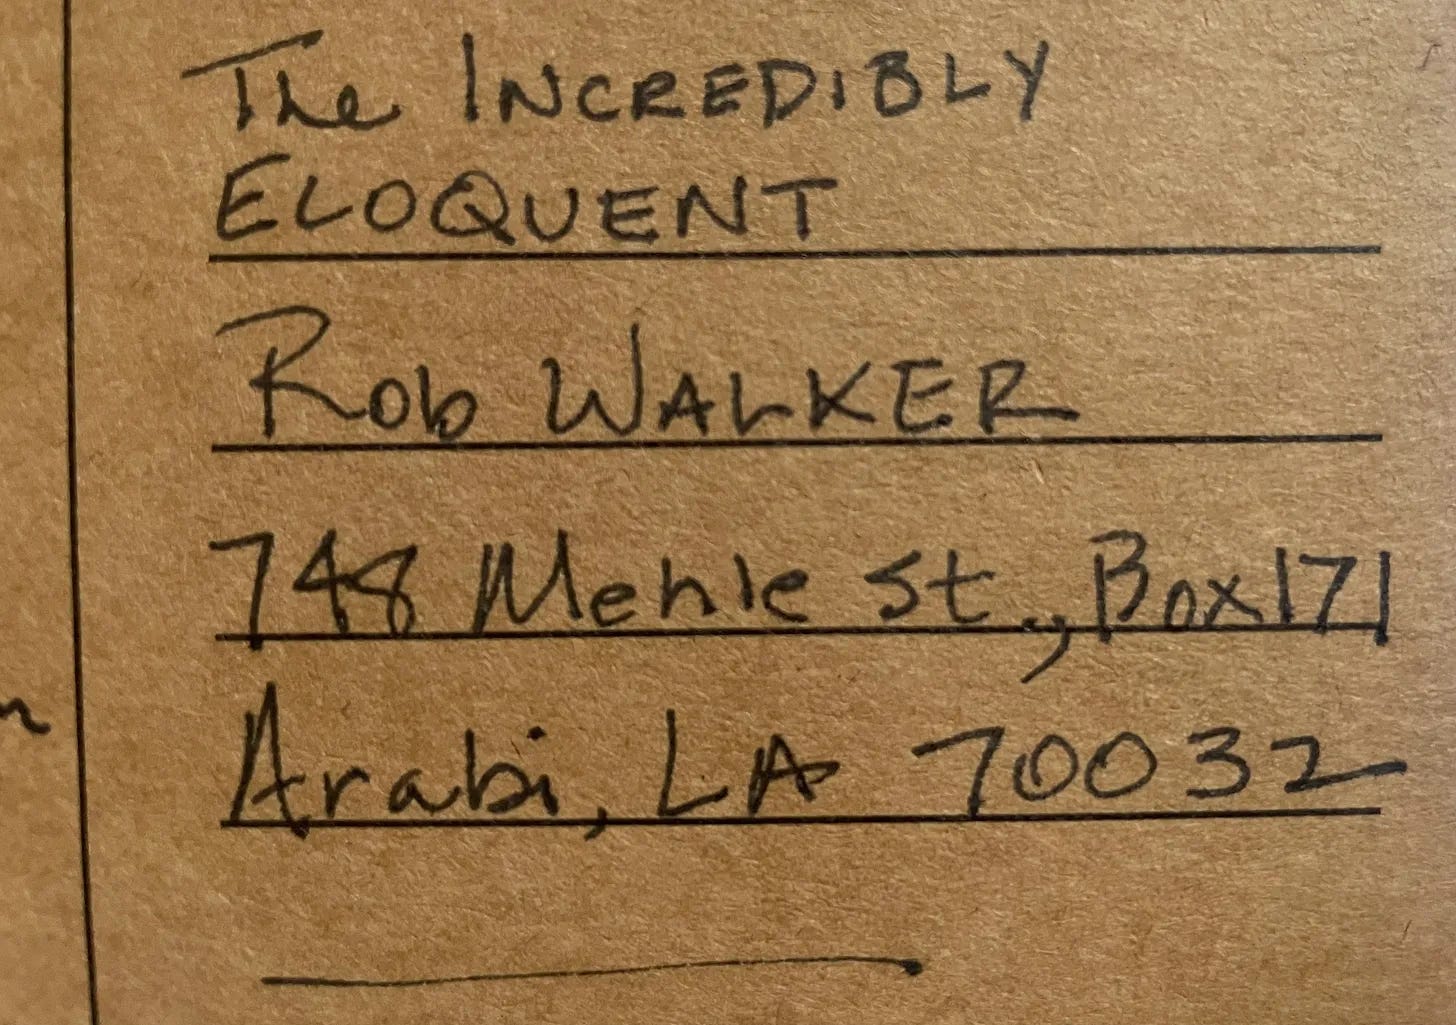 The INCREDIBLY
ELOQUENT
Rob WALKER
748 Mehle St., Box 171
Arabi, LA 70032